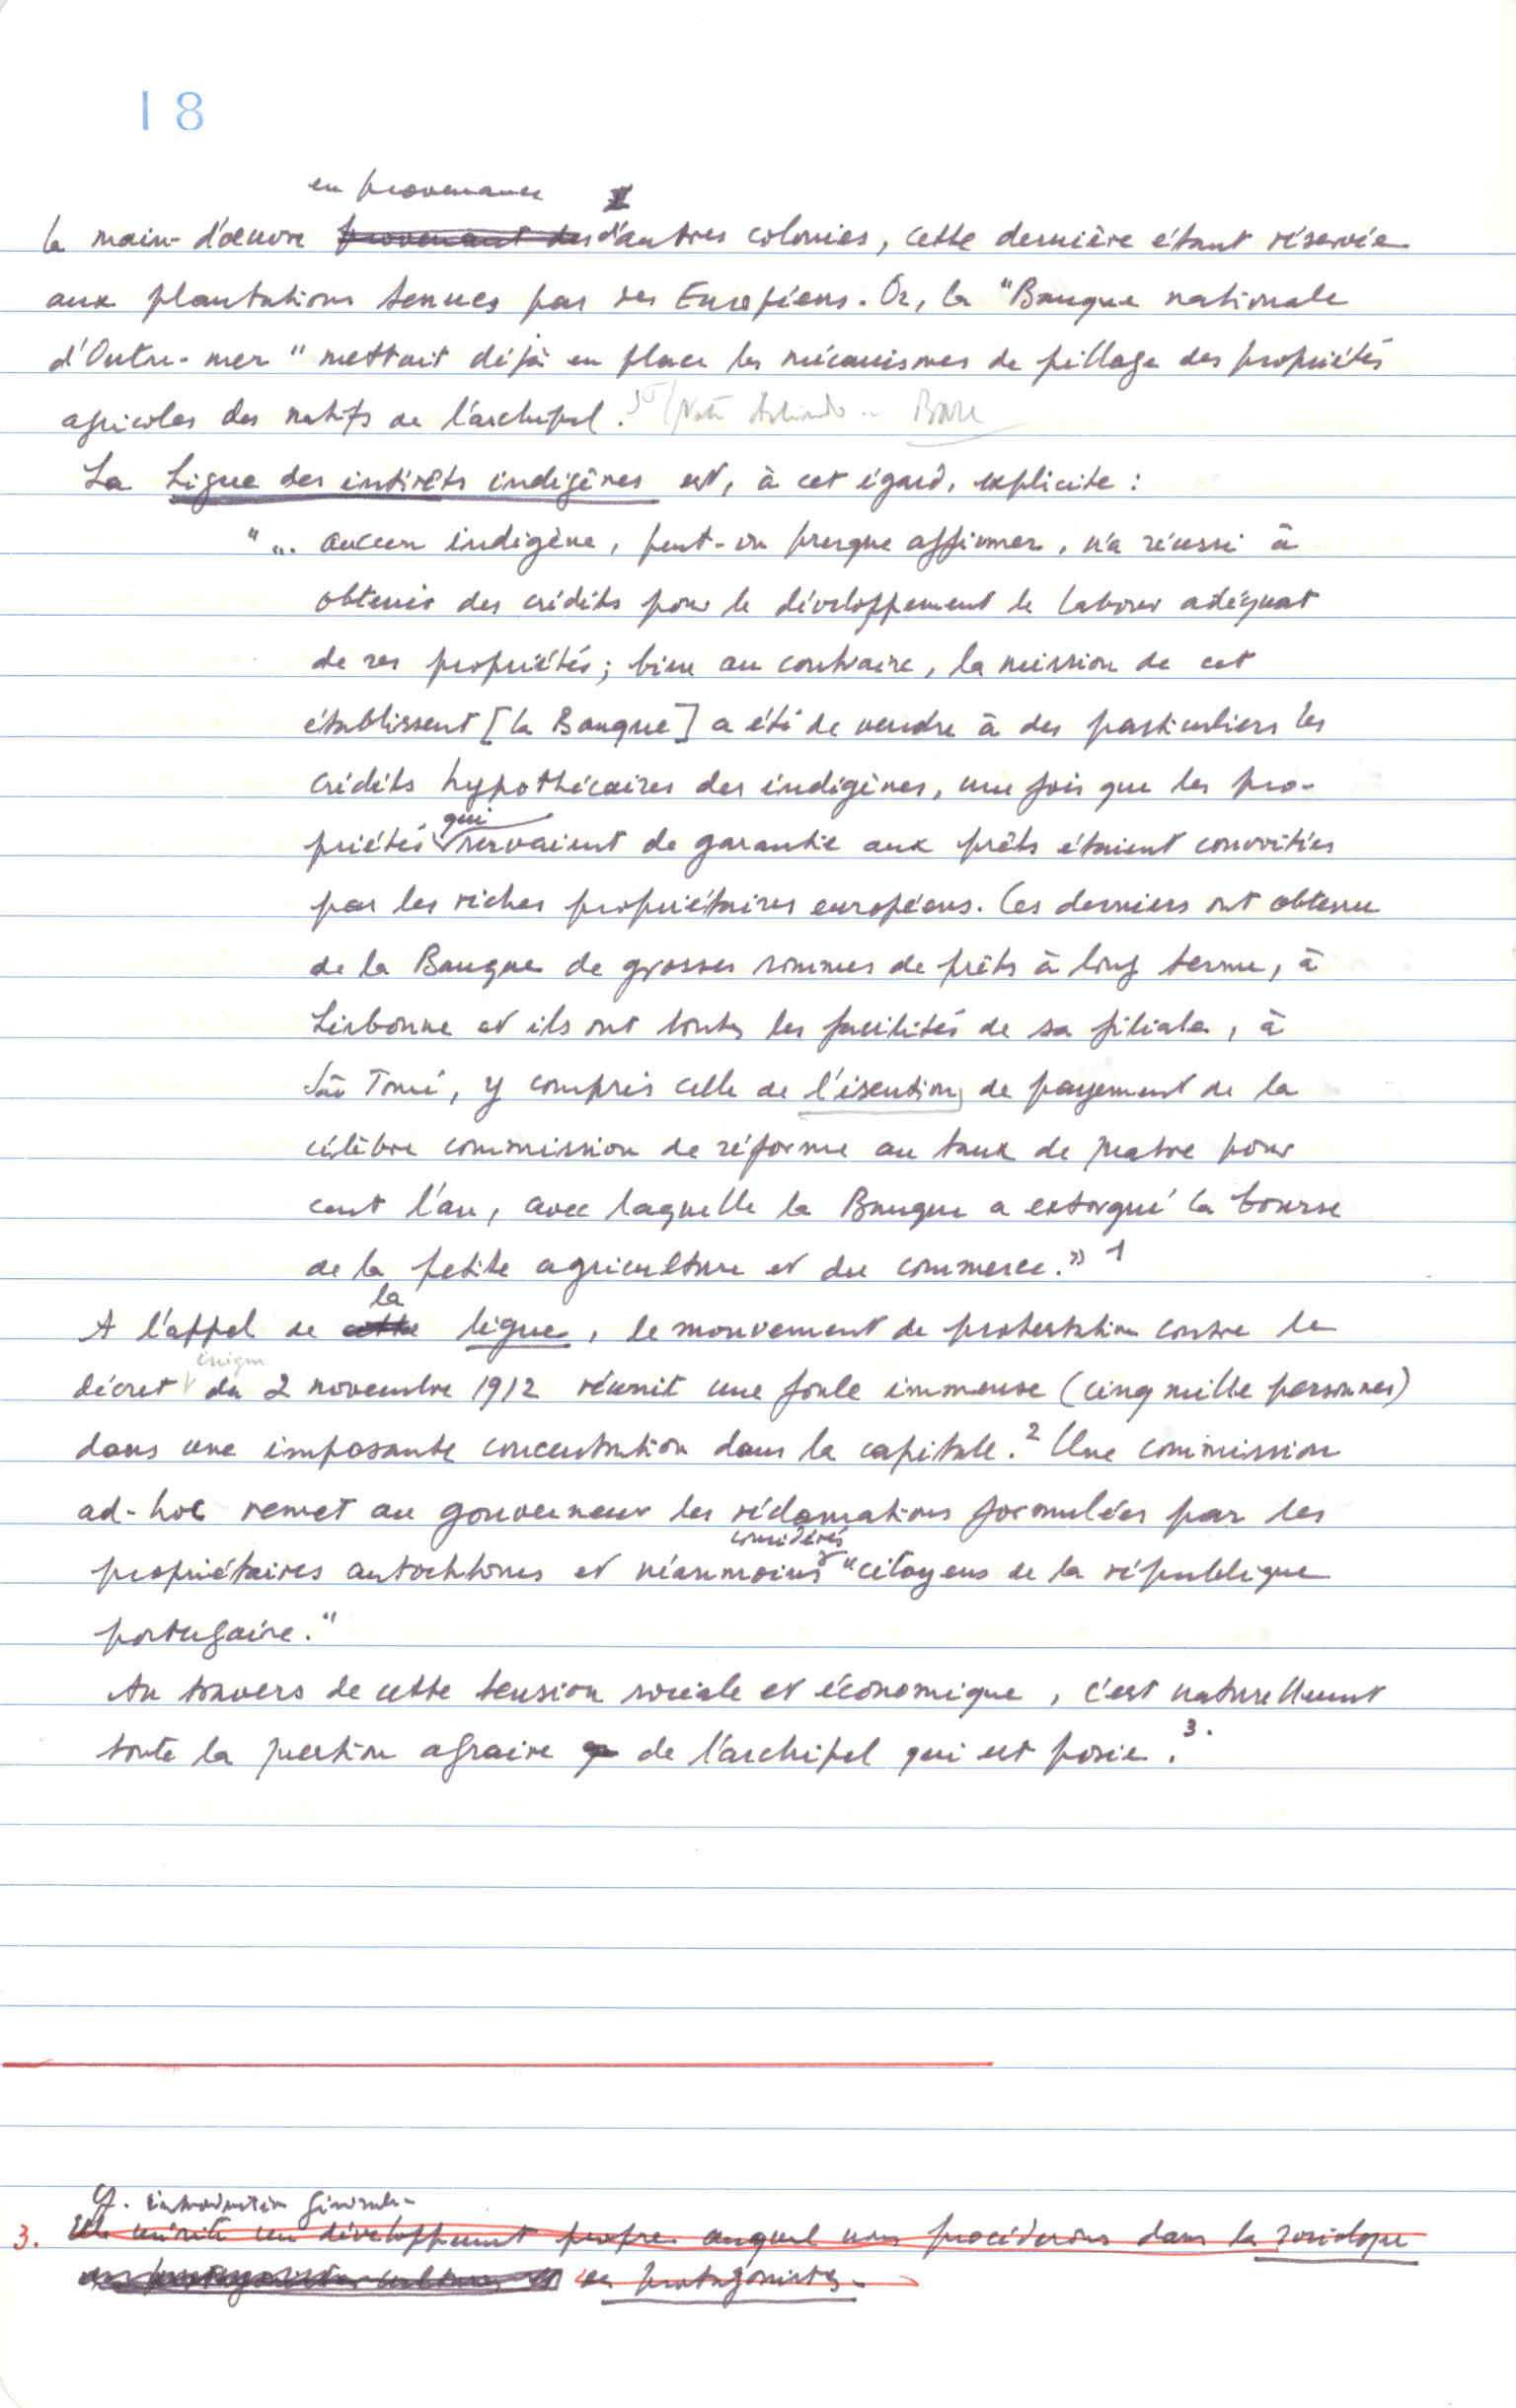 18
en provenance
la main-d'œuvre provenant des d'autres colonies, cette dernière étant réservée
aux plantations tenues par des Européens. Or, la "Banque nationale
d'Outre-mer" mettait déjà en place les mécanismes de pillage des propriétés
agricoles des natifs de l'archipel.
La Ligue des intérêts indigènes est, à cet égard, explicite :
"... aucun indigène, peut-on presque affirmer, n'a réussi à
obtenir des crédits pour le développement le labour adéquat
de ses propriétés ; bien au contraire, la mission de cet
établissent [la Banque] a été de vendre à des particuliers les
crédits hypothécaires des indigènes, une fois que les pro-
priétés qui servaient de garantie aux prêts étaient convoitées
par les riches propriétaires européens. Ces derniers ont obtenu
de la Banque de grosses sommes de prêts à long terme, à
Lisbonne et ils ont toutes les facilités de sa filiale, à
São Tomé, y compris celle de l'isention de payement de la
célèbre commission de réforme au taux de quatre pour
cent l'an, avec laquelle la Banque a extorqué la bourse
de la petite agriculture et du commerce." 1
la
A l'appel de cette ligue, le mouvement de protestation contre le
inique
décret du 2 novembre 1912 réunit une foule immense (cinq mille personnes)
dans une imposante concentration dans la capitale.2 Une commission
ad-hoc remet au gouverneur les réclamations formulées par les
considérés
propriétaires autochtones et néanmoins "citoyens de la république
portugaise."
Au travers de cette tension sociale et économique, c'est naturellement
toute la question agraire de l'archipel qui est posée. 3.
Cf. introduction générale
3. Elle mérite un développement propre auquel nous procéderons dans la sociologie
des protagonistes.